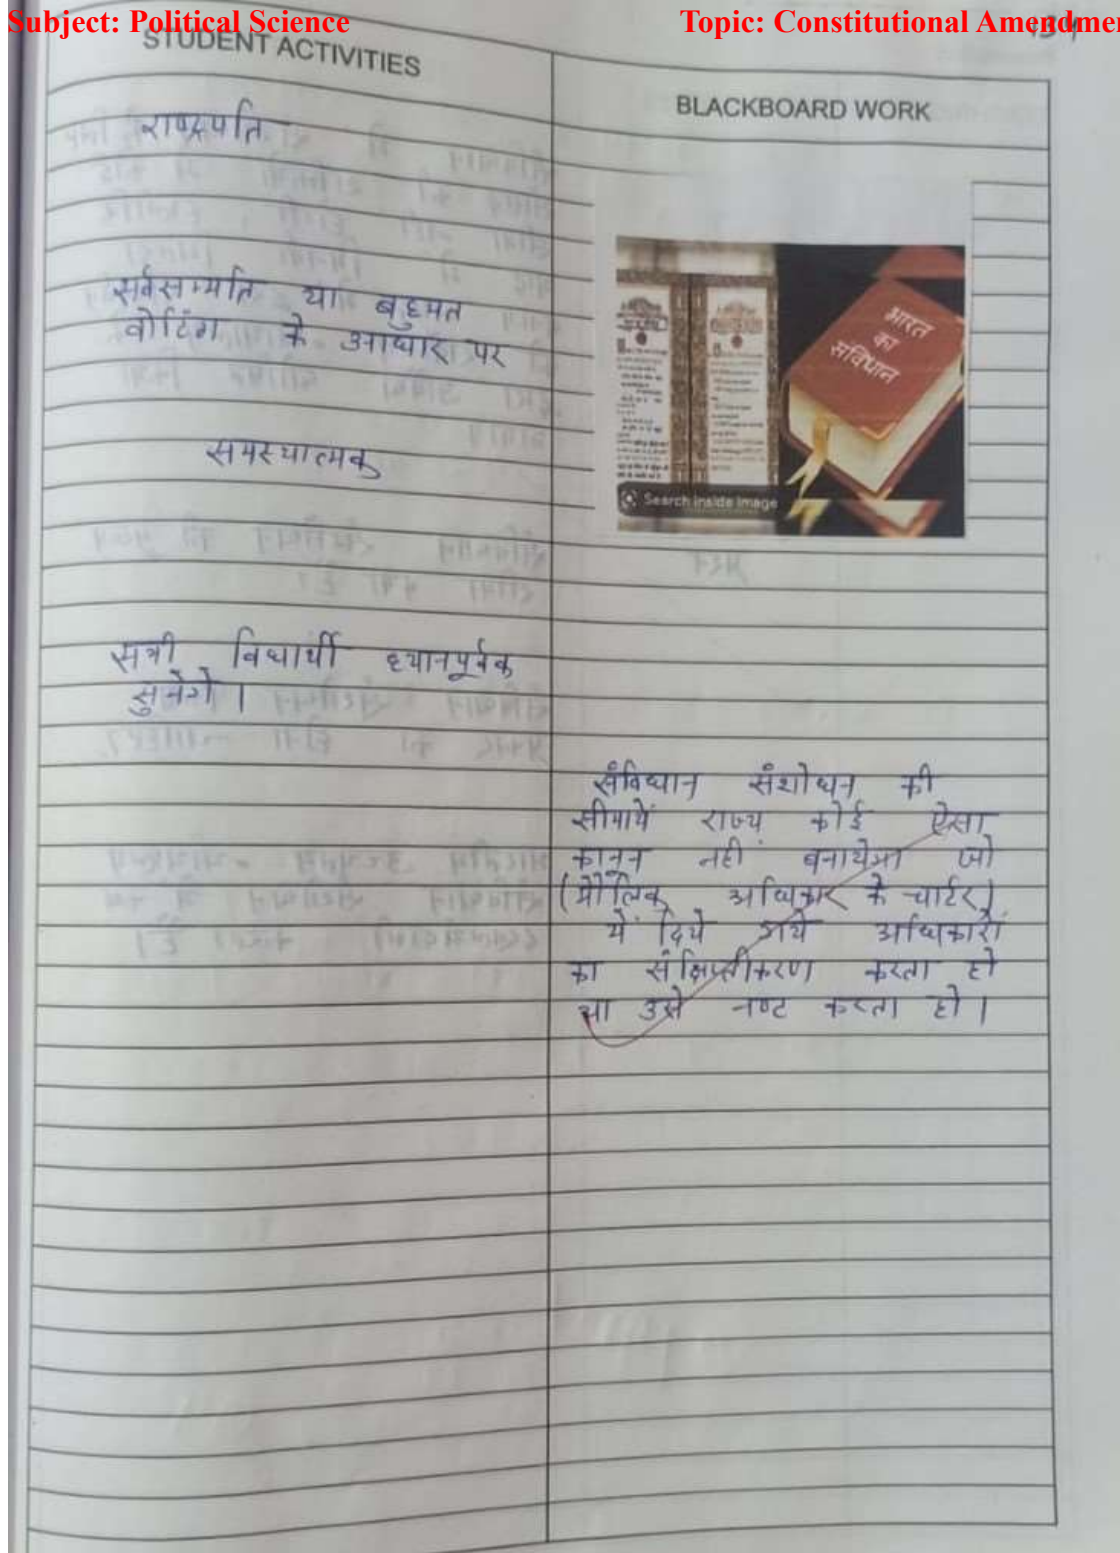 Subject: Political Science
Topic: Constitutional Amendmen
STUDENT ACTIVITIES
राष्ट्रपति
सर्वसम्मति या बहुमत
वोटिंग के आधार पर
समस्यात्मक
सभी विद्यार्थी ध्यानपूर्वक
सुनेगे ।
BLACKBOARD WORK
भारत
का
संविधान
Search inside image
संविधान संशोधन की
सीमायें राज्य कोई ऐसा
कानून नहीं बनायेगा जो
(मौलिक अधिकार के चार्टर)
में दिये गये अधिकारों
का संक्षिप्तीकरण करता हो
या उसे नष्ट करता हो ।